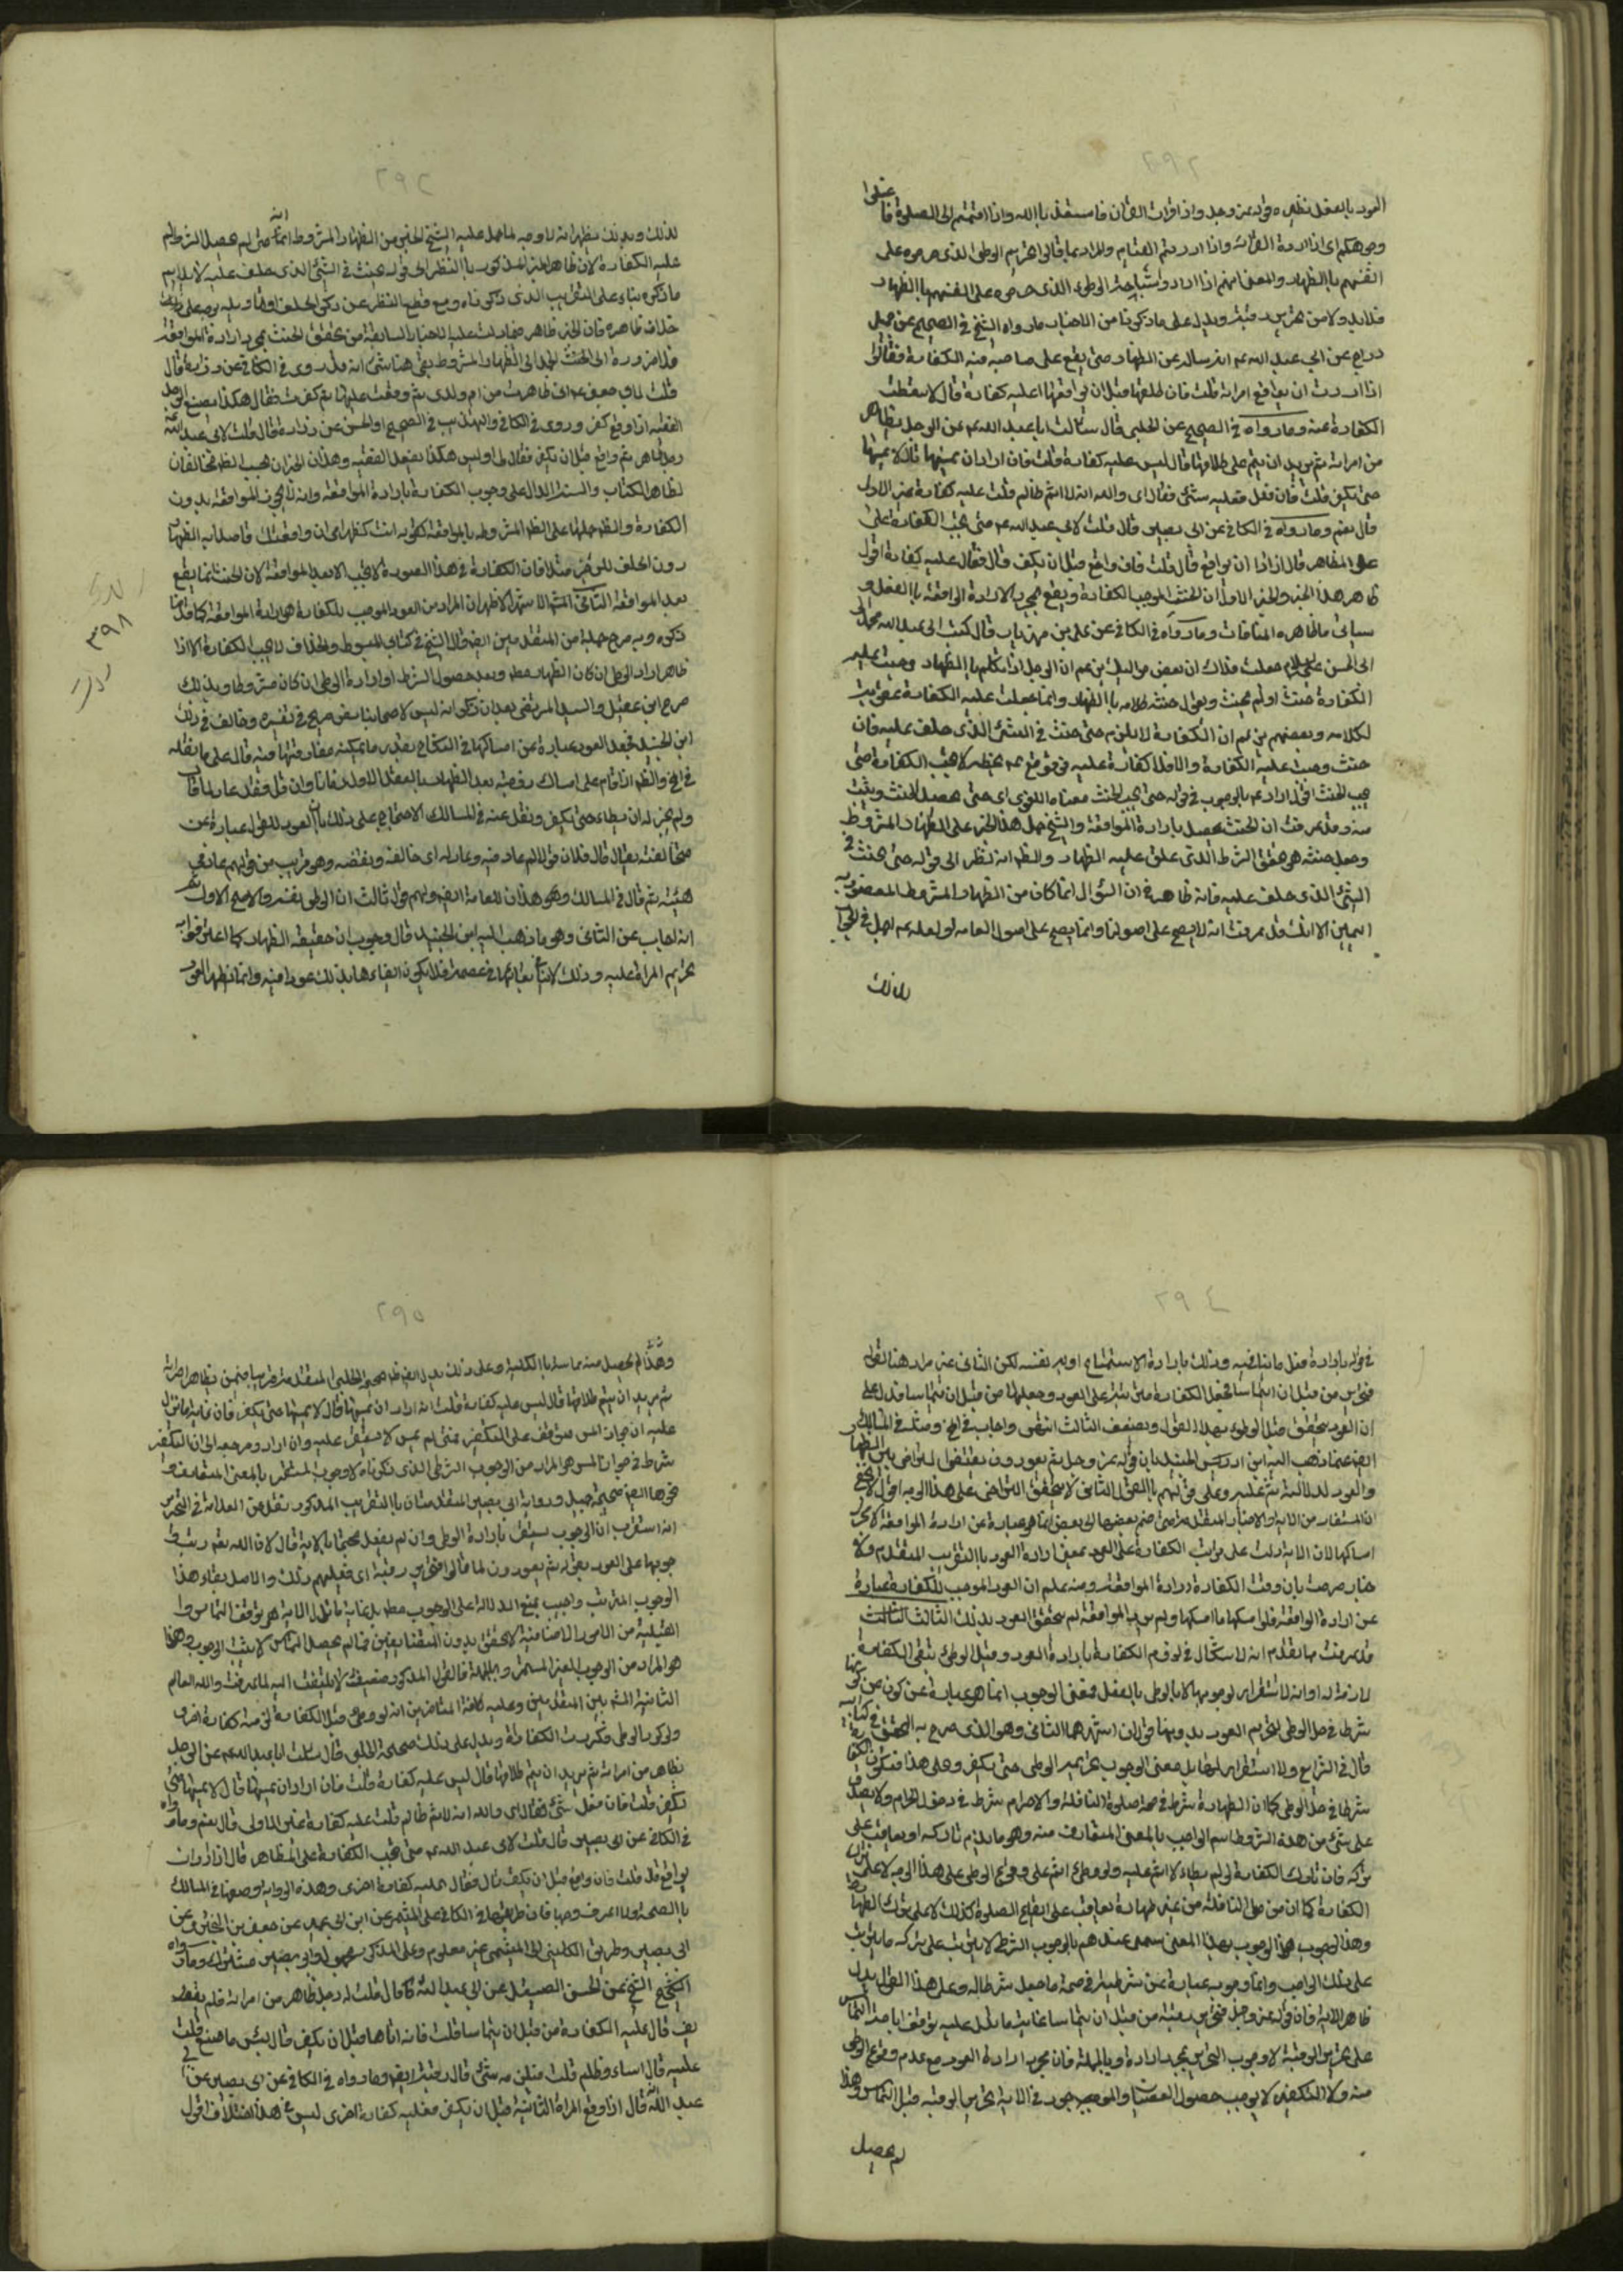 ٢٩٢
العود بالعقل نظيره قوله عز وجل واذا قرات القران فاستعذ بالله واذا قمتم الى الصلوة فاغسلوا
وجوهكم اى اذا اردت القرائة واذا اردتم القيام والمراد بما قالوا تحريم الوطى الذى حرموه على
انفسهم بالظهار والمعنى انهم اذا ارادوا الوطى الذى حرموه على انفسهم بالظهار
فلابد ولا من تحرير رقبة ويدل على ما ذكرنا من الاخبار ما رواه الشيخ فى الصحيح عن جميل
دراج عن ابى عبد الله عم انه ساله عن الظهار متى يقع على صاحبه فيه الكفارة فقال
اذا اردت ان يواقع امراته قلت فان طلقها قبل ان يواقعها اعليه كفارة قال لا سقطت
الكفارة عنه وما رواه فى الصحيح عن الحلبى قال سالت ابا عبد الله عم عن الرجل يظاهر
من امراته ثم يريد ان يتم على طلاقها قال ليس عليه كفارة قلت فان اراد ان يمسها قال لا يمسها
حتى يكفر قلت فان فعل فعليه شئ فقال اى والله انه لاثم ظالم قلت عليه كفارة غير الاولى
قال نعم وما رواه فى الكافى عن ابى بصير قال قلت لابى عبد الله عم متى تجب الكفارة على
على المظاهر قال اذا اراد ان يواقع قال قلت فان واقع قبل ان يكفر قال فقال عليه كفارة اقول
ظاهر هذا الخبر والخبر الاول ان الحنث الموجب الكفارة ويقع بمجرد الارادة الواقعة بالفعل و
سياتى ما ظاهره المنافات وما رواه فى الكافى عن على بن مهزيار قال كتب الى عبد الله محمد
الى ابى الحسن عليه السلام جعلت فداك ان بعض مواليك يزعم ان الرجل اذا تكلم بالظهار وجبت عليه
الكفارة حنث او لم يحنث ويقول حنثه كلامه بالظهار وانما جعلت عليه الكفارة عقوبة
لكلامه وبعضهم يزعم ان الكفارة لا يلزمه حتى يحنث فى الشئ الذى حلف عليه فان
حنث وجبت عليه الكفارة والا فلا كفارة عليه فوقع عم بخطه لا تجب الكفارة حتى
يجب الحنث اقول اراد عم بالوجوب فى قوله حتى يجب الحنث معناه اللغوى اى حتى يحصل الحنث ويثبت
منه وقد عرفت ان الحنث يحصل بارادة المواقعة والشيخ حمل هذا الخبر على الظهار المشروط
وجعل حنثه هو تحقق الشرط الذى علق عليه الظهار والظ انه نظر الى قوله حتى يحنث فى
الشئ الذى حلف عليه فانه ظاهر فى ان السؤال انما كان من الظهار المشروط المقصود به
اليمين الا انك قد عرفت انه لا يصح على اصولنا وانما يصح على اصول العامه ولعله عم اجل فى الجواب
لذلك
٢٩٣
لذلك وبذلك يظهر انه لا وجه لما حمل عليه الشيخ الخبر من الظهار المشروط انه متى لم يحصل الشرط لم
عليه الكفارة لان ظاهر الخبر المذكور بالنظر الى قوله يحنث فى الشئ الذى حلف عليه لا يلايم
ما ذكره بناء على التقريب الذى ذكرناه ومع قطع النظر عن ذكر الحلف اولا وتاويله بوجه على
خلاف ظاهره فان الخبر ظاهر فيما دلت عليه الاخبار السابقة من تحقق الحنث بمجرد ارادة المواقعة
فلا ضرورة الى الحنث الحمل الى الظهار المشروط بقى هنا شئ انه قد روى فى الكافى عن زرارة قال
قلت لابى جعفر عم انى ظاهرت من ام ولدى ثم وقعت عليها ثم كفرت فقال هكذا يصنع الرجل
الفقيه اذا وقع كفر وروى فى الكافى والتهذيب فى الصحيح او الحسن عن زرارة قال قلت لابى عبد الله
رجل ظاهر ثم واقع قبل ان يكفر فقال لى اوليس هكذا يفعل الفقيه وهذان الخبران بحسب الظ مخالفان
لظاهر الكتاب والسنة الدال على وجوب الكفارة بارادة المواقعة وانه لا يجوز المواقعة بدون
الكفارة والظ حملها على الظهار المشروط بالمواقعة كقوله انت كظهر امى ان واقعتك قاصدا به الظهار
دون الحلف للزجر مثلا فان الكفارة فى هذا الصورة لا تجب الا بعد المواقعة لان الحنث انما يقع
بعد المواقعة الثانى الاشهر الاظهر ان المراد من العود الموجب للكفارة هو ارادة المواقعة كما قدمنا
ذكره وبه صرح جملة من المتقدمين ايضا قال الشيخ فى كتاب المبسوط والخلاف لا يجب الكفارة الا اذا
ظاهر اراد الوطى ان كان الظهار مطلقا وبعد حصول الشرط او ارادة الوطى ان كان مشروطا وبذلك
صرح ابن عقيل والسيد المرتضى بعد ان ذكر انه ليس لاصحابنا نص صريح فى تفسيره وخالف فى ذلك
ابن الجنيد فجعل العود عبارة عن امساكها فى النكاح بقدر ما يمكنه مفارقتها فيه قال على ما نقله
فى المخ والظ اذا قام على امساك زوجته بعد الظهار بالعقد الاول زمانا وان قل فقد عاد لما قال
ولم يجز له ان يطاء حتى يكفر ونقل عنه فى المسالك الاحتجاج على ذلك بان العود للقول عبارة عن
مخالفته يقال قال فلان قولا ثم عاد فيه وعاد له اى خالفه ونقضه وهو قريب من قولهم عاد فى
هبته ثم قال فى المسالك وهو هذان للعامة ايضا ولهم قول ثالث ان الوطى نفسه والاصح الاول ثم
انه اجاب عن الثانى وهو ما ذهب اليه ابن الجنيد قال وجوب ان حقيقة الظهار كما اعترفوا به
تحريم المراة عليه وذلك لا ينافى بقائها فى عصمته فلا يكون ابقاءها بذلك عودا فيه وانما يظهر العود
للدى
٣٩٨
٢٩٤
فى قوله بارادة فعل ما ينافيه وذلك بارادة الاستمتاع او به نفسه لكن الثانى غير مراد هنا لقوله
فتحرير من قبل ان يتماسا فجعل الكفارة مترتبة على العود وجعلها من قبل ان يتماسا فدل على
ان العود يتحقق قبل الوطى بهذا القول ويضعف الثالث انتهى واجاب فى المخ ومثله فى المسالك
ايضا عما ذهب اليه ابن ادريس الجنيد بان قوله عز وجل ثم يعودون يقتضى التراخى بين الظهار
والعود لدلالة ثم عليه وعلى قولهم بالقول الثانى لا يتحقق التراخى على هذا الوجه اقول لا يخفى
ان المستفاد من الاية والاخبار المتقدمة متى ضم بعضها الى بعض انما هو عبارة عن ارادة المواقعة لا مجرد
امساكها لان الاية دلت على ترتب الكفارة على العود بمعنى ارادة العود بالتقريب المتقدم والا
خبار صرحت بان وقت الكفارة ارادة المواقعة ومنه يعلم ان العود الموجب للكفارة عبارة
عن ارادة المواقعة فلو امسكها ما امسكها ولم يرد المواقعة لم يتحقق العود بذلك الثالث الثالث
قد عرفت مما تقدم انه لا اشكال فى لزوم الكفارة بارادة العود وقبل الوطى بقى الكفارة
لازمة له او انه لا استقرار لوجوبها الا بالوطى بالفعل فمعنى الوجوب انما هو عبارة عن كون
شرطا فى حل الوطى لتحريم العود بدونها قولان اشهرهما الثانى وهو الذى صرح به المحقق فى كتابيه
قال فى الشرايع ولا استقرار لها بل معنى الوجوب تحريم الوطى حتى يكفر وعلى هذا فتكون الكفارة
شرطا فى حل الوطى كما ان الطهارة شرط فى صحة صلوة النافلة والاحرام شرط فى دخول الحرم ولا يصدق
على شئ من هذه الشروط اسم الواجب بالمعنى المتعارف منه وهو ما يذم تاركه او يعاقب على
تركه فان تارك الكفارة لو لم يطاء لا اثم عليه ولو وطئ اثم على وقوع الوطى على هذا الوجه لا على ترك
الكفارة كما ان من صلى النافلة من غير طهارة يعاقب على ايقاع الصلوة كذلك لا على ترك الطهارة
وهذا الوجوب بهذا المعنى يسمى عندهم بالوجوب الشرطى لا يترتب على تركه ما يترتب
على ذلك الواجب وانما وجوبه عبارة عن شرطيته فى صحة ما جعل شرطا له وعلى هذا القول يدل
ظاهر الاية فان قوله عز وجل فتحرير رقبة من قبل ان يتماسا غاية ما يدل عليه توقف اباحة التماس
على تحرير الرقبة لا وجوب التحرير بمجرد ارادة وبالجملة فان مجرد ارادة العود مع عدم وقوع الوطى
منه ولا التكفير لا يوجب حصول العقاب والموجود فى الاية تحرير الرقبة قبل التماس وهذا
لم يحصل
٢٩٥
وهذا لم يحصل منه مماسة بالكلية وعلى ذلك يدل ايضا صحيح الحلبى المتقدمة قريبا فيمن يظاهر امراته
ثم يريد ان يتم طلاقها قال ليس عليه كفارة قلت ان اراد ان يمسها قال لا يمسها حتى يكفر فان غاية ما تدل
عليه ان جواز المس متوقف على التكفير فمتى لم يمس لا يستقر عليه وان اراد ومرجعه الى ان التكفير
شرط فى جواز المس هو المراد من الوجوب الشرطى الذى ذكرناه لا وجوب المستقر بالمعنى المتعارف و
نحوها ايضا صحيحة جميل ورواية ابى بصير المتقدمتان بالتقريب المذكور نقل عن العلامة فى التحرير
انه استقرب ان الوجوب يستقر بارادة الوطى وان لم يفعل محتجا بالاية قال لان الله تعم رتب
وجوبها على العود بقوله ثم يعودون لما قالوا فتحرير رقبة اى فعليهم ذلك والاصل بقاء هذا
الوجوب المترتب واجيب بمنع الدلالة على الوجوب مطلقا بل غاية ما تدل الاية هو توقف التماس وا
القبلية من الامور الاضافية لا يتحقق بدون المتضايفين فما لم يحصل التماس لا يثبت الوجوب وهذا
هو المراد من الوجوب الغير المستمر وبالجملة فالقول المذكور ضعيف لا يلتفت اليه لما عرفت والله العالم
الثانية المشهور بين المتقدمين وعليه كافة المتاخرين انه لو وطئ قبل الكفارة لزمه كفارة اخرى
ولو كرر الوطى تكررت الكفارة ويدل على ذلك صحيحة الحلبى قال سالت ابا عبد الله عم عن الرجل
يظاهر من امراته ثم يريد ان يتم طلاقها قال ليس عليه كفارة قلت فان اراد ان يمسها قال لا يمسها حتى
يكفر قلت فان فعل شئ فقال اى والله انه لاثم ظالم قلت عليه كفارة غير الاولى قال نعم وما رواه
فى الكافى عن ابى بصير قال قلت لابى عبد الله عم متى تجب الكفارة على المظاهر قال اذا اراد ان
يواقع قال قلت فان واقع قبل ان يكفر قال فقال عليه كفارة اخرى وهذه الرواية وصفها فى المسالك
بالصحة ولا اعرف وجها فان طريقها فى الكافى على الميثمى عن ابن ابى عمير عن جعفر بن البخترى عن
ابى بصير وطريق الكلينى الى الميثمى غير معلوم وعلى المذكور مجهول وابو بصير مشترك وما رواه
الشيخ عن الحسن الصيقل عن ابى عبد الله عم قال قلت له رجل ظاهر من امراته فلم يف
يف قال عليه الكفارة من قبل ان يتماسا قلت فانه اتاها قبل ان يكفر قال بئس ما صنع قلت
عليه قال اساء وظلم قلت فيلزمه شئ قال رقبة ايضا وما رواه فى الكافى عن ابى بصير عن ابى
عبد الله قال اذا وقع المراة الثانية قبل ان يكفر فعليه كفارة اخرى ليس فى هذا اختلاف اقول